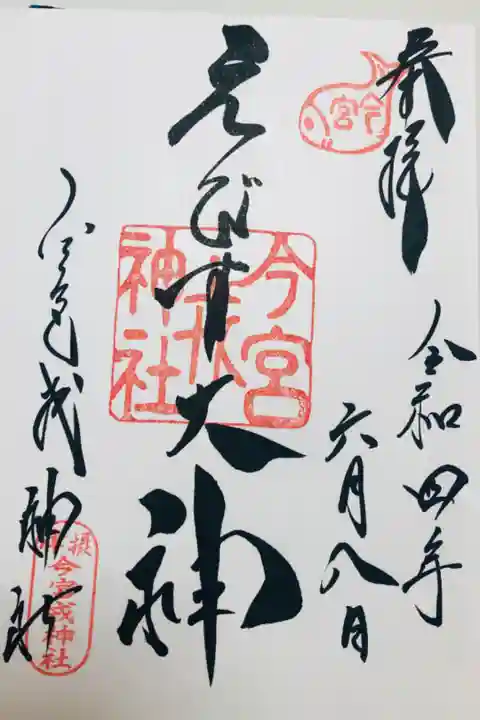 奉拝
今宮
令和四年
六月八日
えびす大神
今宮
戎
神社
今宮戎神社
今宮戎神社